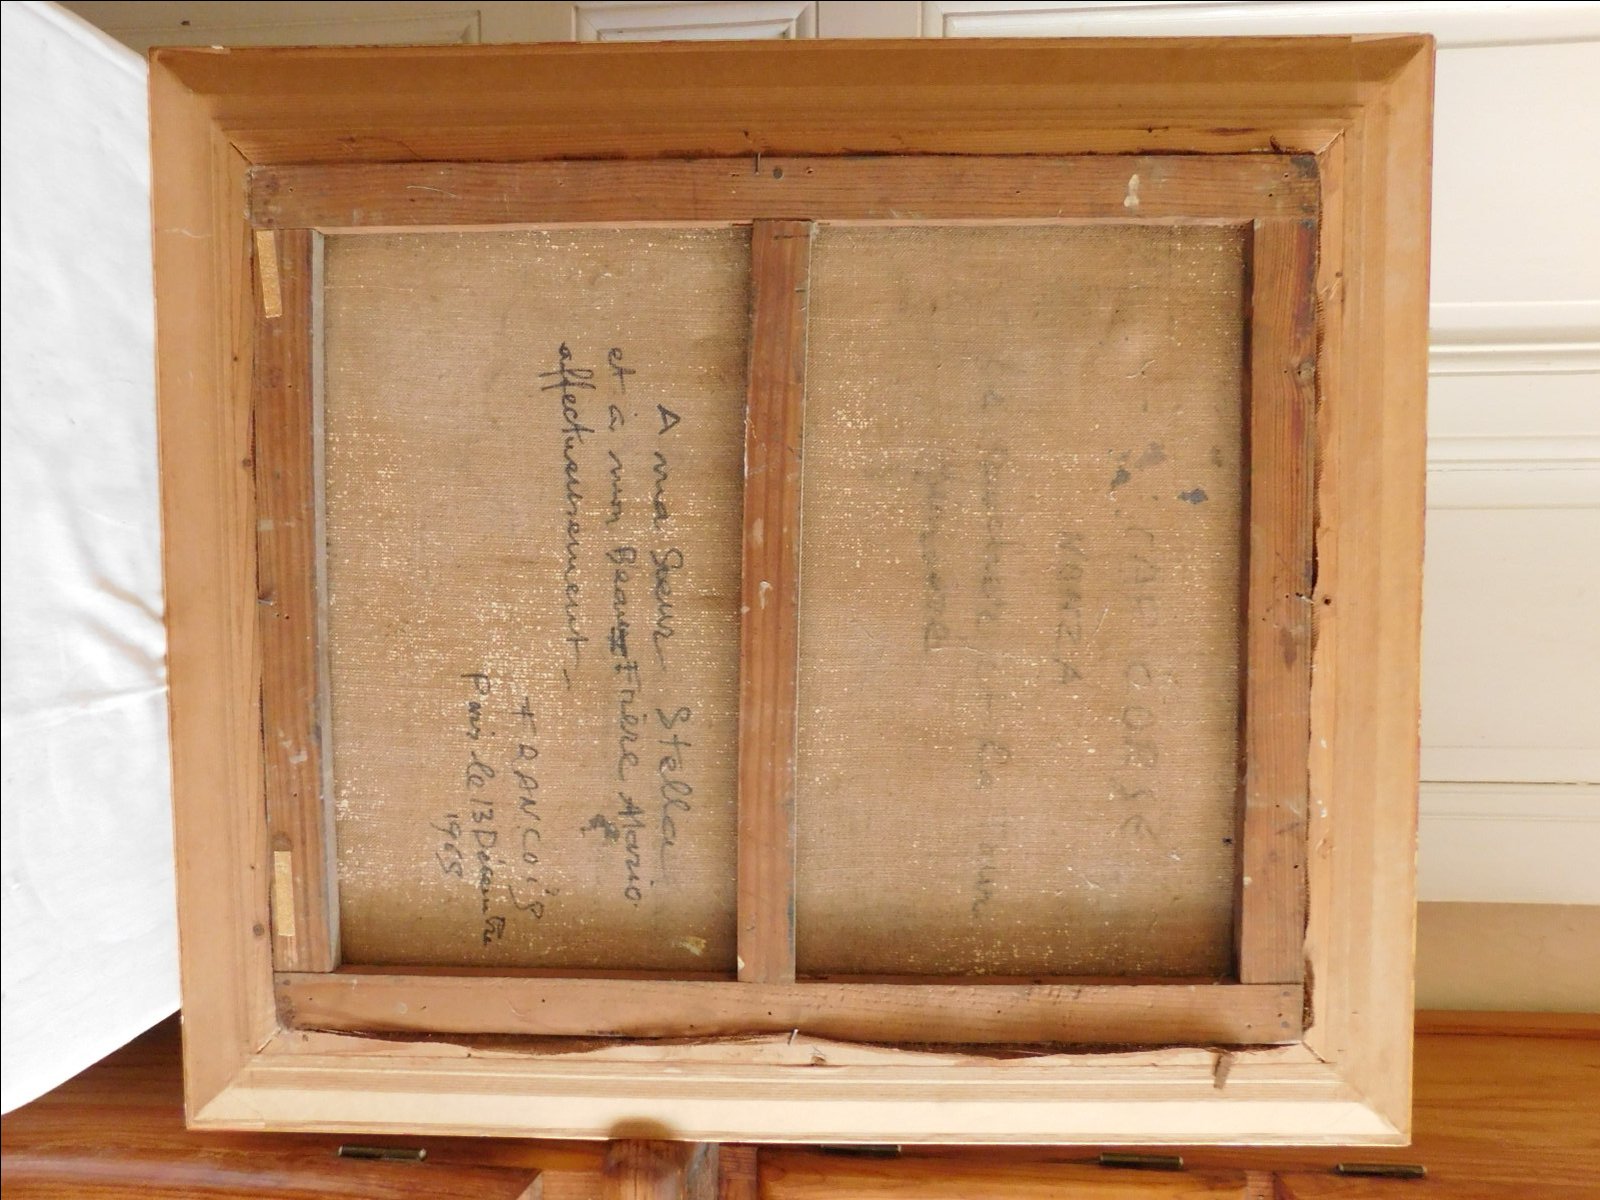 CAP CORSE
NONZA
et la Tour
A ma Soeur Stella
et à mon Beau Frère Mario
affectueusement -
FRANCOiS
Paris le 13 Décembre
1965